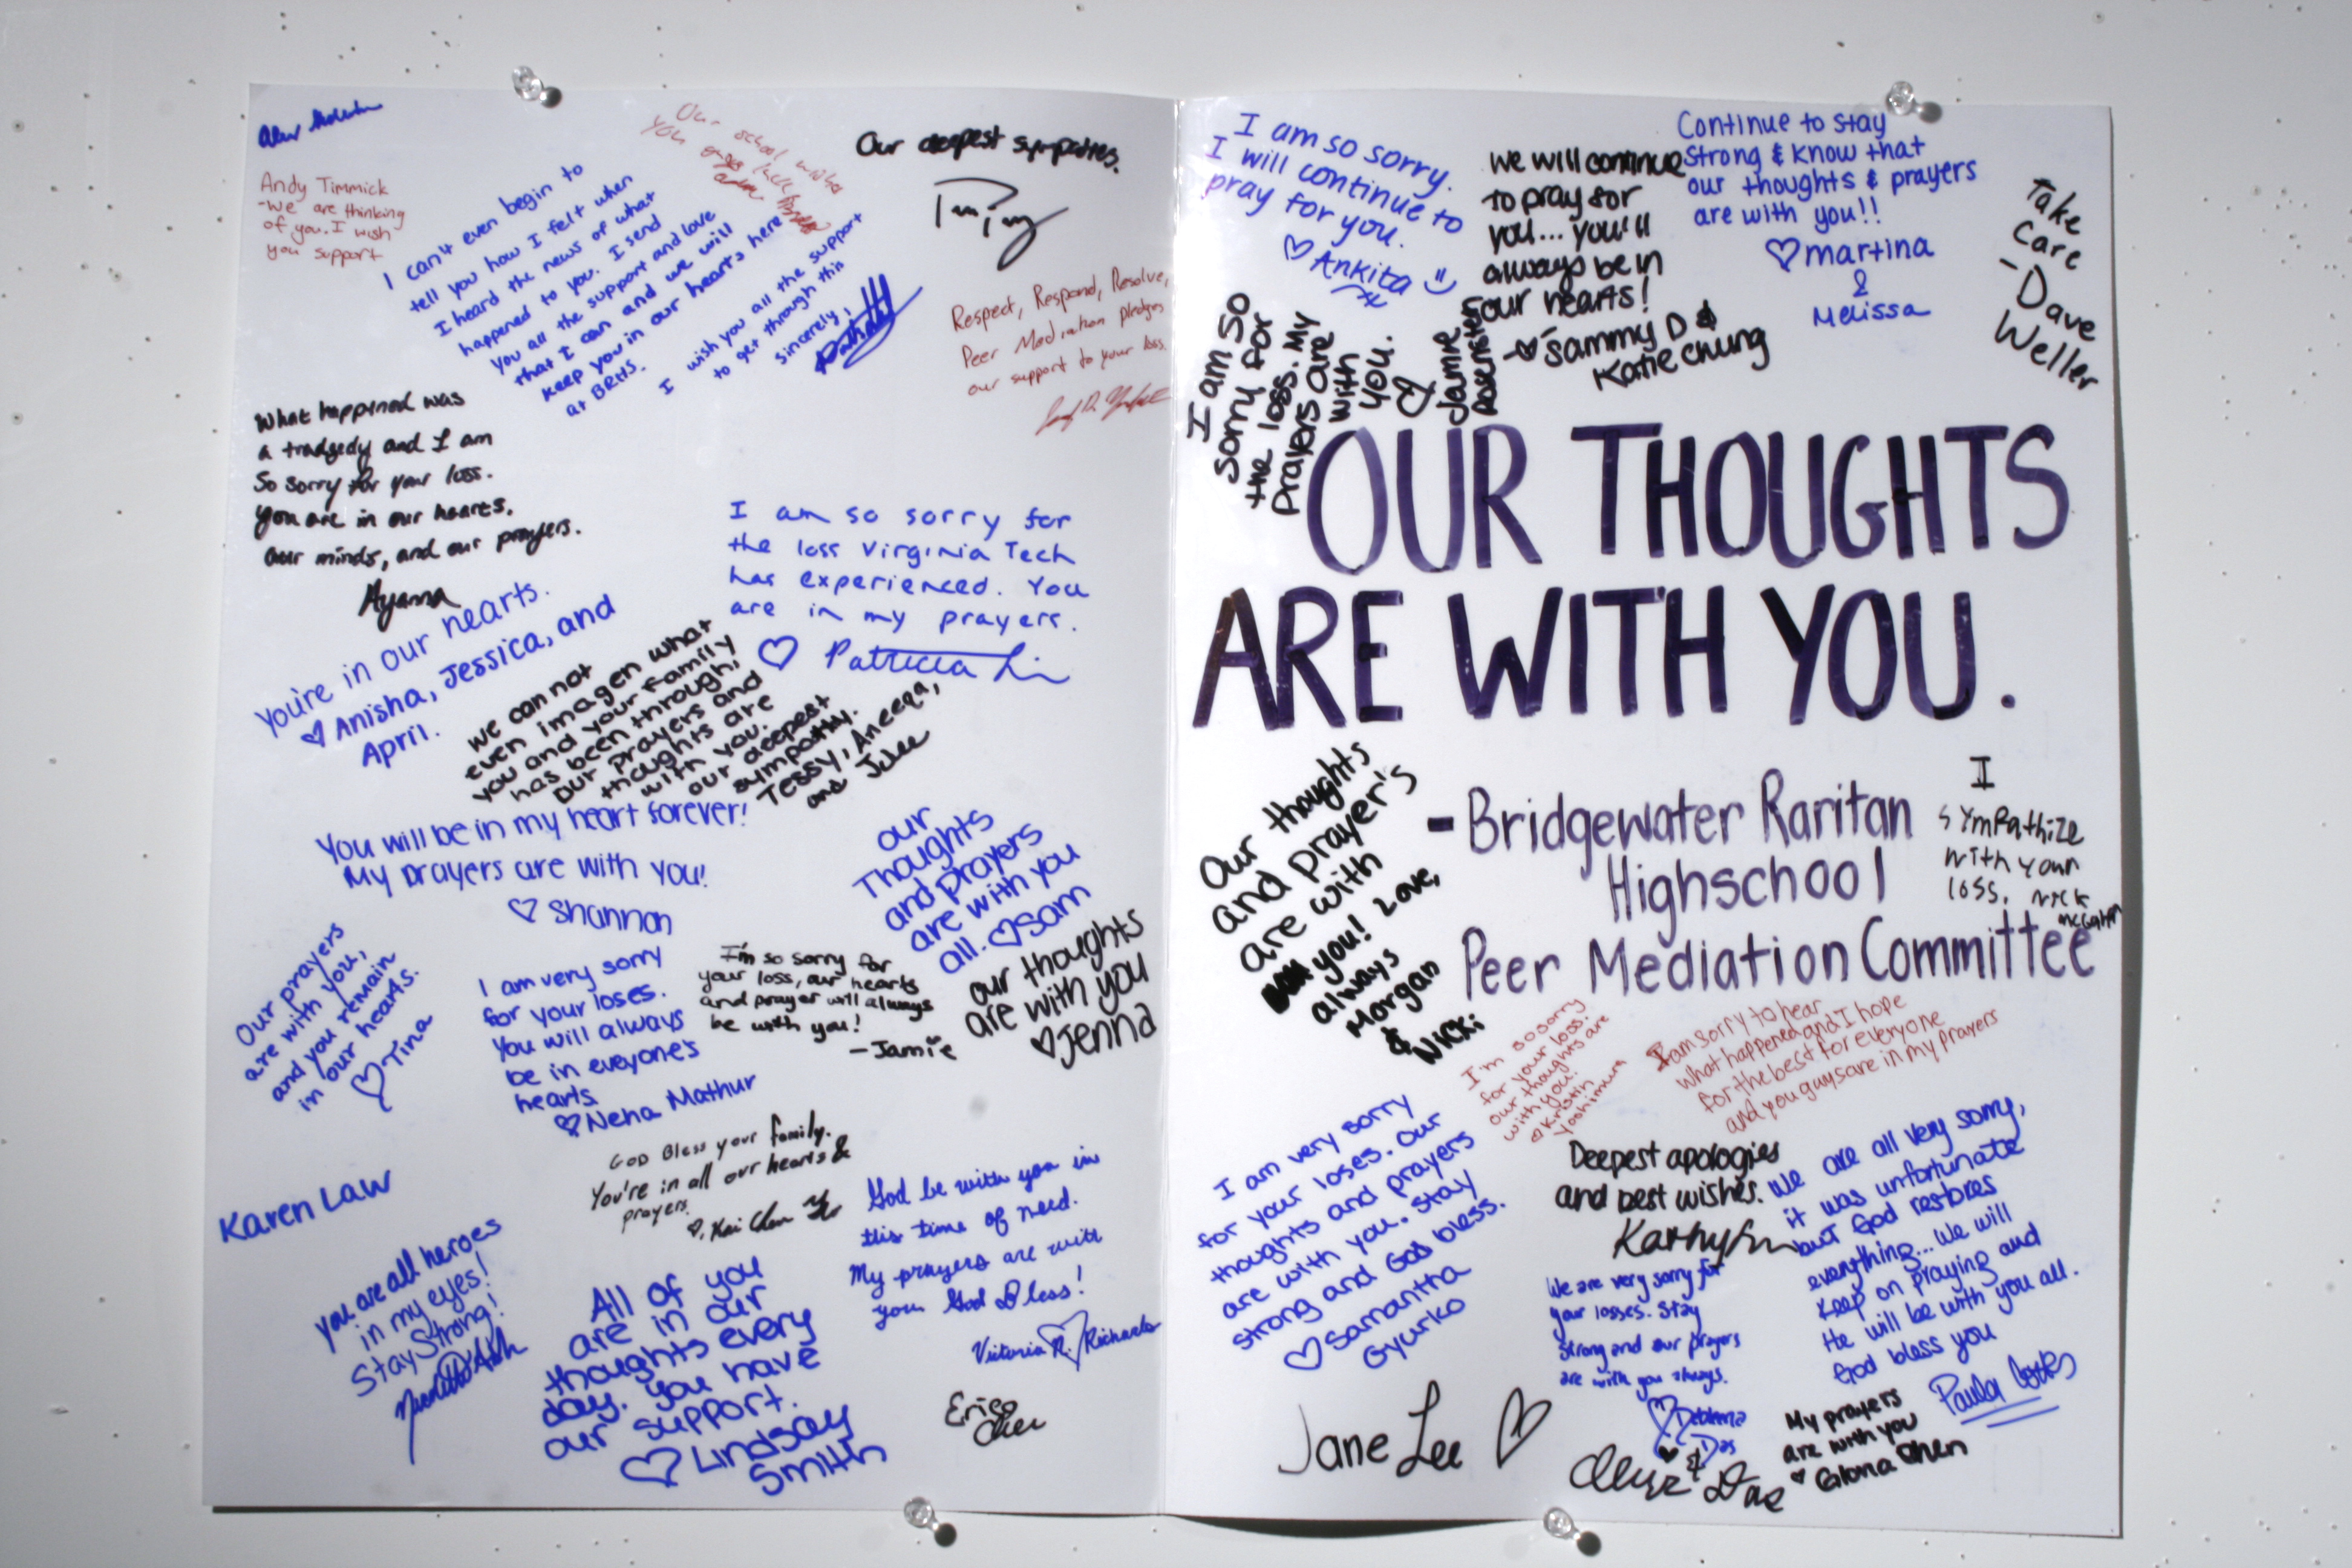 Andy Timmick
-We are thinking
of you. I wish
you support
I can't even begin to
tell you how I felt when
I heard the news of what
happened to you. I send
you all the support and love
that I can and we will
keep you in our hearts here
at BRHS.
I wish you all the support
to get through this
sincerely,
Our school wishes
you
Our deepest sympaties.
Respect, Respond, Resolve,
Peer Mediation pledges
our support to your loss.
What happened was
a tradgedy and I am
so sorry for your loss.
you are in our hearts,
our minds, and our prayers.
Ayanna
You're in our hearts.
♡ Anisha, Jessica, and
April.
I am so sorry for
the loss Virginia Tech
has experienced. You
are in my prayers.
♡ Patricia Li
we can not
even imagen what
you and your family
has been through,
our prayers and
thoughts are
with you.
our deepest
sympathy.
Tessy, Aneeqa,
and Julee
You will be in my heart forever!
My prayers are with you!
♡ Shannon
our
Thoughts
and prayers
are with you
all. ♡ Sam
Our prayers
are with you,
and you remain
in our hearts.
♡ Tina
I am very sorry
for your loses.
You will always
be in eveyone's
hearts.
♡ Neha Mathur
I'm so sorry for
your loss, our hearts
and prayer will always
be with you!
-Jamie
our thoughts
are with you
♥ Jenna
GOD Bless your family.
You're in all our hearts &
prayers.
♡. Kai Chen
Karen Law
God be with you in
this time of need.
My prayers are with
you God Bless!
Victoria R. ♡ Richards
you are all heroes
in my eyes!
Stay Strong!
All of you
are in our
thoughts every
day. you have
our support.
♡ Lindsay
Smith
Erica
Chen
I am so sorry.
I will continue to
pray for you.
♡ Ankita
we will continue
to pray for
you... you'll
always be in
our hearts!
-♡ Sammy D &
Katie Chung
Continue to stay
strong & know that
our thoughts & prayers
are with you!!
♡ martina
&
Melissa
Take
Care
-Dave
Weller
I am so
sorry for
the loss. My
prayers are
with
you.
Jamie
Rosenstein
OUR THOUGHTS
ARE WITH YOU.
-Bridgewater Raritan
Highschool
Peer Mediation Committee
I
sympathize
with your
loss. Nick
Our thoughts
and prayer's
are with
you! Love,
always
Morgan
&
Nicki
I'm so sorry
for your loss.
our thoughts are
with you.
♡ Kristin
Yoshimura
I am sorry to hear
what happened and I hope
for the best for everyone
and you guys are in my prayers
I am very sorry
for your loses. Our
thoughts and prayers
are with you. Stay
strong and God bless.
♡ Samantha
Gyurko
Deepest apologies
and best wishes.
Kathy
We are all very sorry,
it was unfortunate
but God restores
everything... We will
keep on praying and
He will be with you all.
God bless you
Paula
We are very sorry for
your losses. Stay
strong and our prayers
are with you always.
Das
&
Jane Lee ♡
My prayers
are with you
♥ Gloria Shen